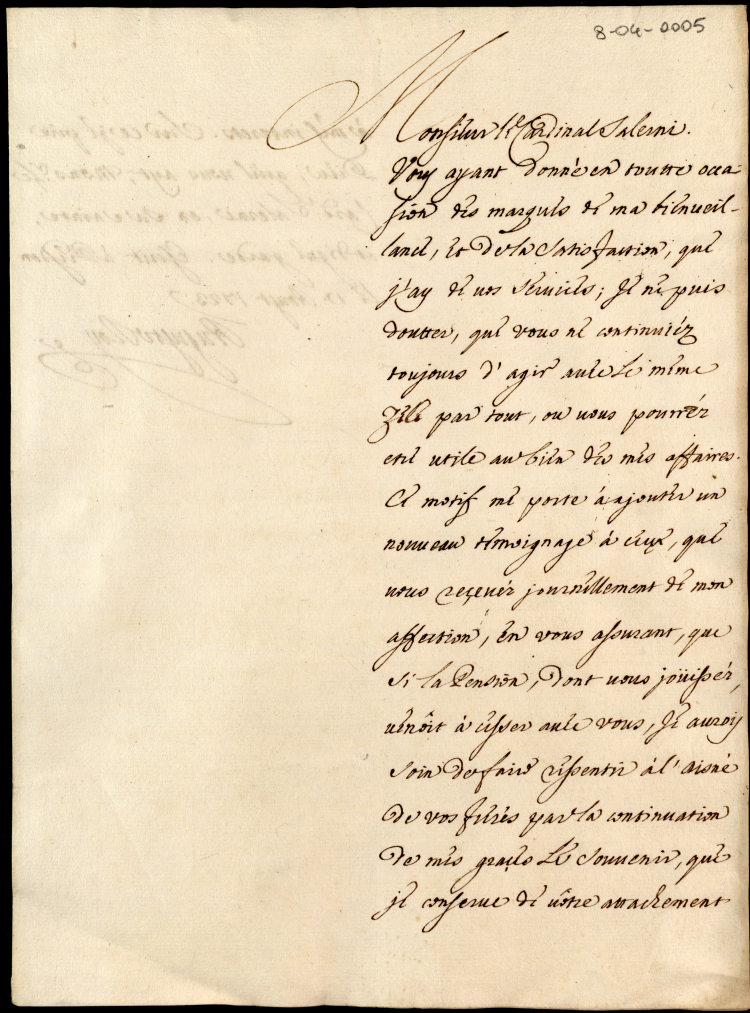 8-04-0005
Monsieur le Cardinal Salerni.
Vous ayant donné en toutte occa-
sion des marques de ma bienueil-
lance, et de la Satisfaction, que
j'ay de vos Services; Je ne puis
doutter, que vous ne continuiéz
toujours d'agir auec Le même
Zele par tout, ou vous pourréz
etre utile au bien de mes affaires.
Ce motif me porte à ajouter un
nouveau témoignage à ceux, que
vous reçevéz journellement de mon
affection, en vous assurant, que
si la Pension, dont vous joüissér,
venôit à cesser auec vous, Je aurois
soin de faire ressentir à l'aisné
de vos freres par la continuation
de mes graçes Le Souvenir, que
je conserve de vôtre attachement